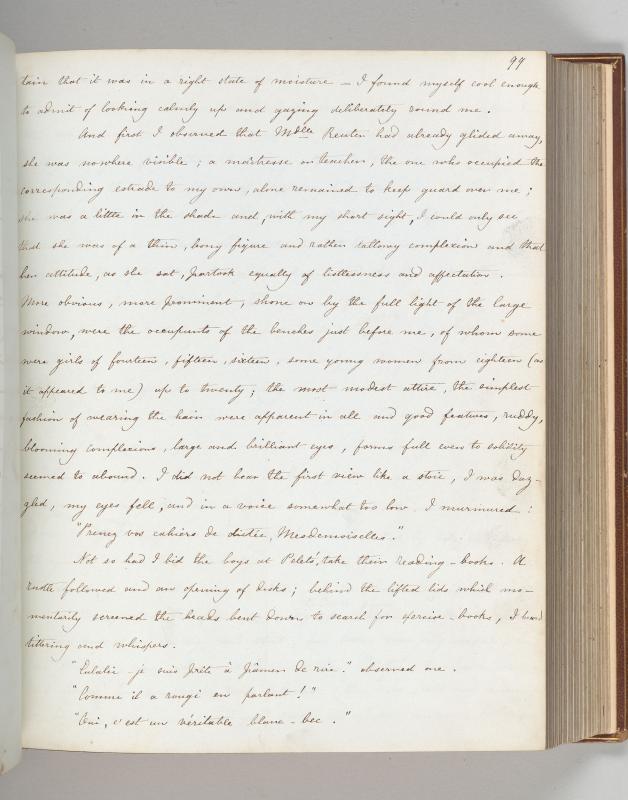 99
tain that it was in a right state of moisture — I found myself cool enough
to admit of looking calmly up and gazing deliberately round me.
And first I observed that Mdlle Reuter had already glided away,
she was nowhere visible; a maîtresse or teacher, the one who occupied the
corresponding estrade to my own, alone remained to keep guard over me;
she was a little in the shade and, with my short sight, I could only see
that she was of a thin, bony figure and rather tallowy complexion and that
her attitude, as she sat, partook equally of listlessness and affectation.
More obvious, more prominent, shone on by the full light of the large
window, were the occupants of the benches just before me, of whom some
were girls of fourteen, fifteen, sixteen, some young women from eighteen (as
it appeared to me) up to twenty; the most modest attire, the simplest
fashion of wearing the hair were apparent in all and good features, ruddy,
blooming complexions, large and brilliant eyes, forms full even to solidity
seemed to abound. I did not bear the first view like a stoic, I was daz-
gled, my eyes fell, and in a voice somewhat too low I murmured:
"Prenez vos cahiers de dictée, Mesdemoiselles."
Not so had I bid the boys at Pelet's, take their reading-books. A
rustle followed and an opening of desks; behind the lifted lids which mo-
mentarily screened the heads bent down to search for exercise-books, I heard
tittering and whispers.
"Eulalie - je suis prête à pâmer de rire." observed one.
"Comme il a rougi en parlant!"
"Oui, c'est un véritable blanc-bec."